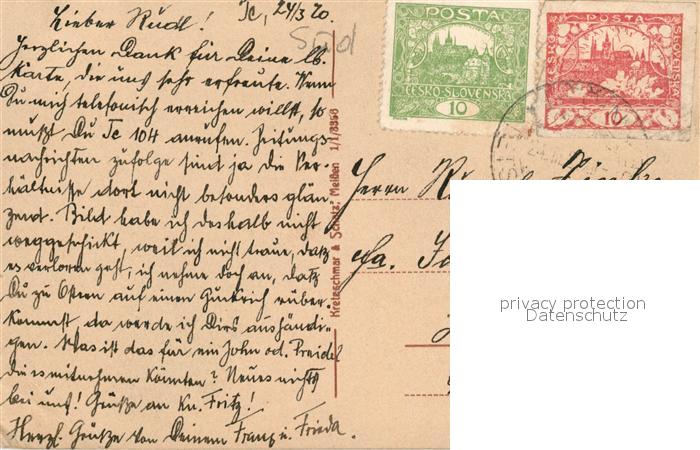 Te, 24/3 20.
Lieber Rudl!
Herzlichen Dank für Deine lb.
Karte, die uns sehr erfreute. Wenn
Du mich telefonisch erreichen willst, so
mußt Du Te 104 anrufen. Zeitungs-
nachrichten zufolge sind ja die Ver-
hältnisse dort nicht besonders glän-
zend. Bild habe ich deshalb nicht
weggeschickt, weil ich nicht traue, daß
es verloren geht; ich nehme doch an, daß
Du zu Ostern auf einen rüber-
kommst, da werde ich Dirs aushändi-
gen. Was ist das für ein John od. Preidel
die es mitnehmen könnten? Neues nichts
bei uns! Grüße an Kn. Fritz!
Herzl. Grüße von Deinem Franz u. Frieda.
POSTA
ČESKO-SLOVENSKÁ
10
POSTA
ČESKO
SLOVENSKÁ
10
Kretzschmar & Schatz, Meißen 1/1/8358
Herrn
Fa.
privacy protection
Datenschutz